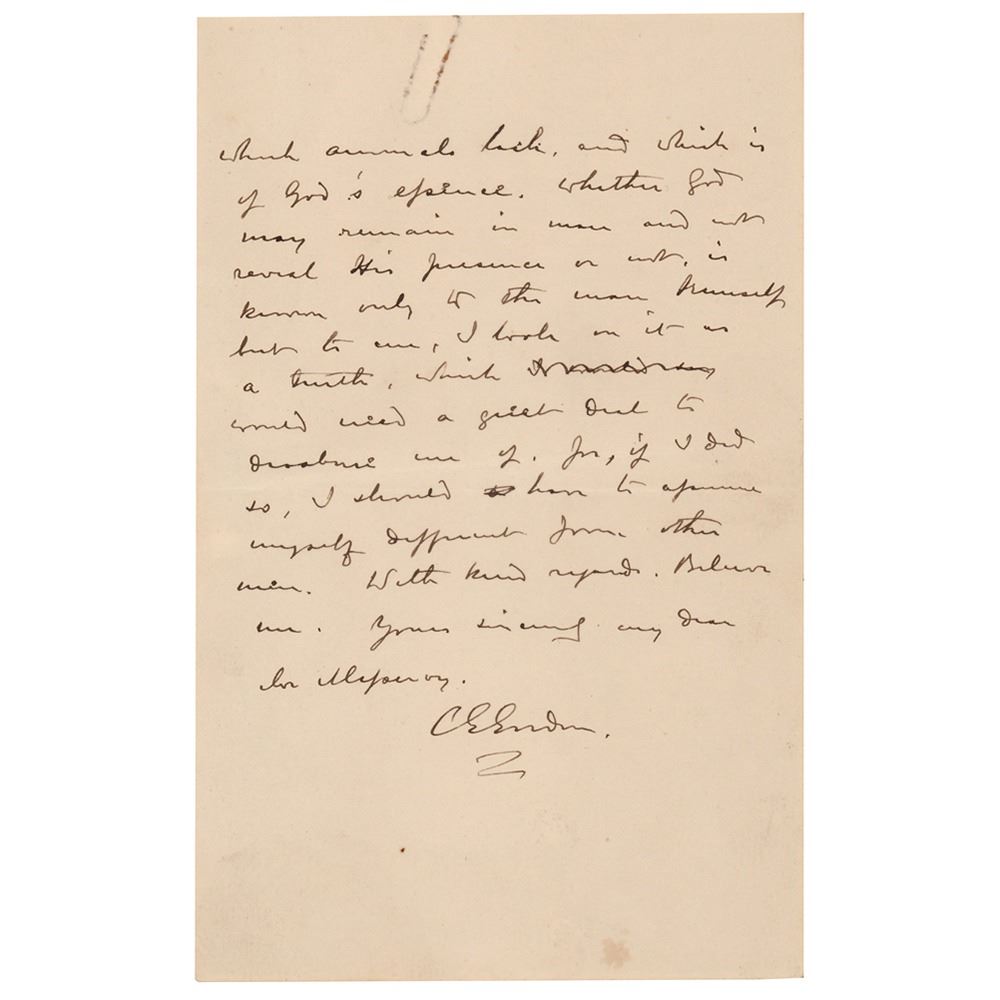 which animals lack, and which is
of God's essence. Whether God
may remain in man and not
reveal His presence or not, is
known only to the man himself
but to me, I look on it as
a truth, which
would need a great deal to
disabuse me of. for, if I did
so, I should have to assume
myself different from other
men. With kind regards. Believe
me. Yours sincerely my dear
Messervy.
CEGordon.